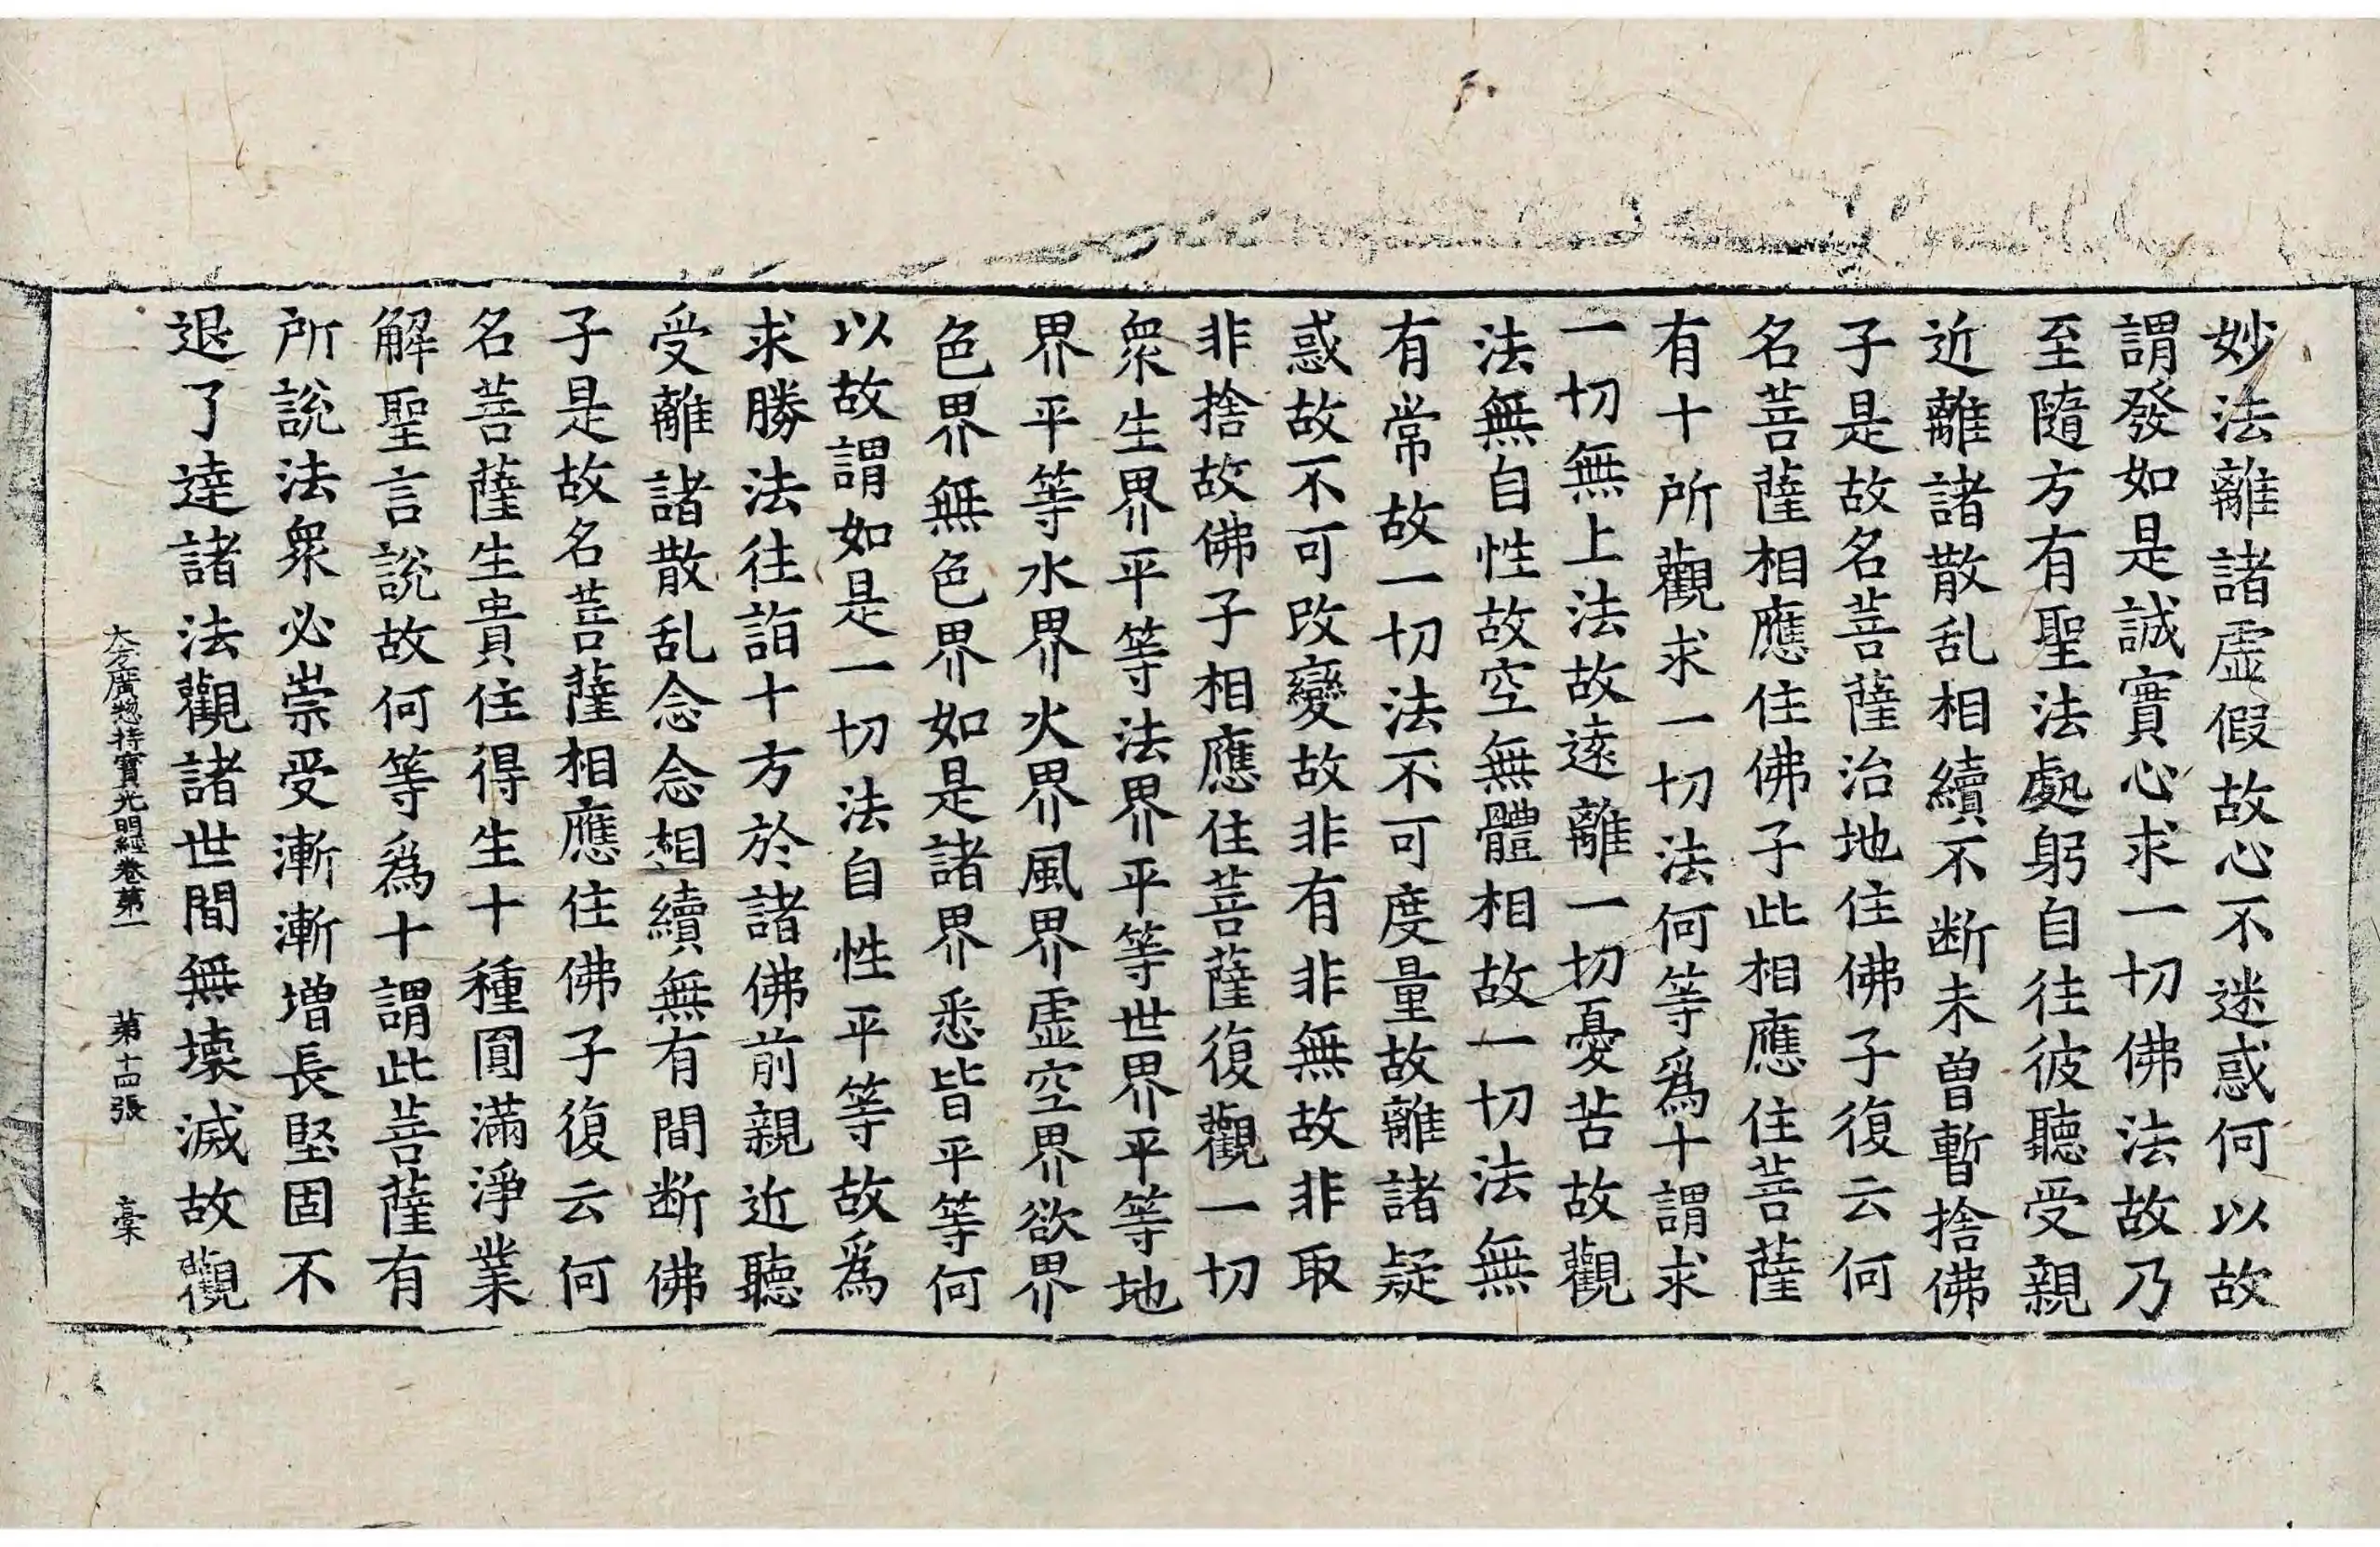 妙法離諸虛假故心不迷惑何以故
謂發如是誠實心求一切佛法故乃
至隨方有聖法處躬自往彼聽受親
近離諸散乱相續不断未曾暫捨佛
子是故名菩薩治地住佛子復云何
名菩薩相應住佛子此相應住菩薩
有十所觀求一切法何等爲十謂求
一切無上法故遠離一切憂苦故觀
法無自性故空無體相故一切法無
有常故一切法不可度量故離諸疑
惑故不可改變故非有非無故非取
非捨故佛子相應住菩薩復觀一切
衆生界平等法界平等世界平等地
界平等水界火界風界虛空界欲界
色界無色界如是諸界悉皆平等何
以故謂如是一切法自性平等故爲
求勝法往詣十方於諸佛前親近聽
受離諸散乱念念相續無有間断佛
子是故名菩薩相應住佛子復云何
名菩薩生貴住得生十種圓滿淨業
解聖言說故何等爲十謂此菩薩有
所說法衆必崇受漸漸增長堅固不
退了達諸法觀諸世間無壞滅故觀
大方廣㧾持寶光明經卷第一 第十四張 槀